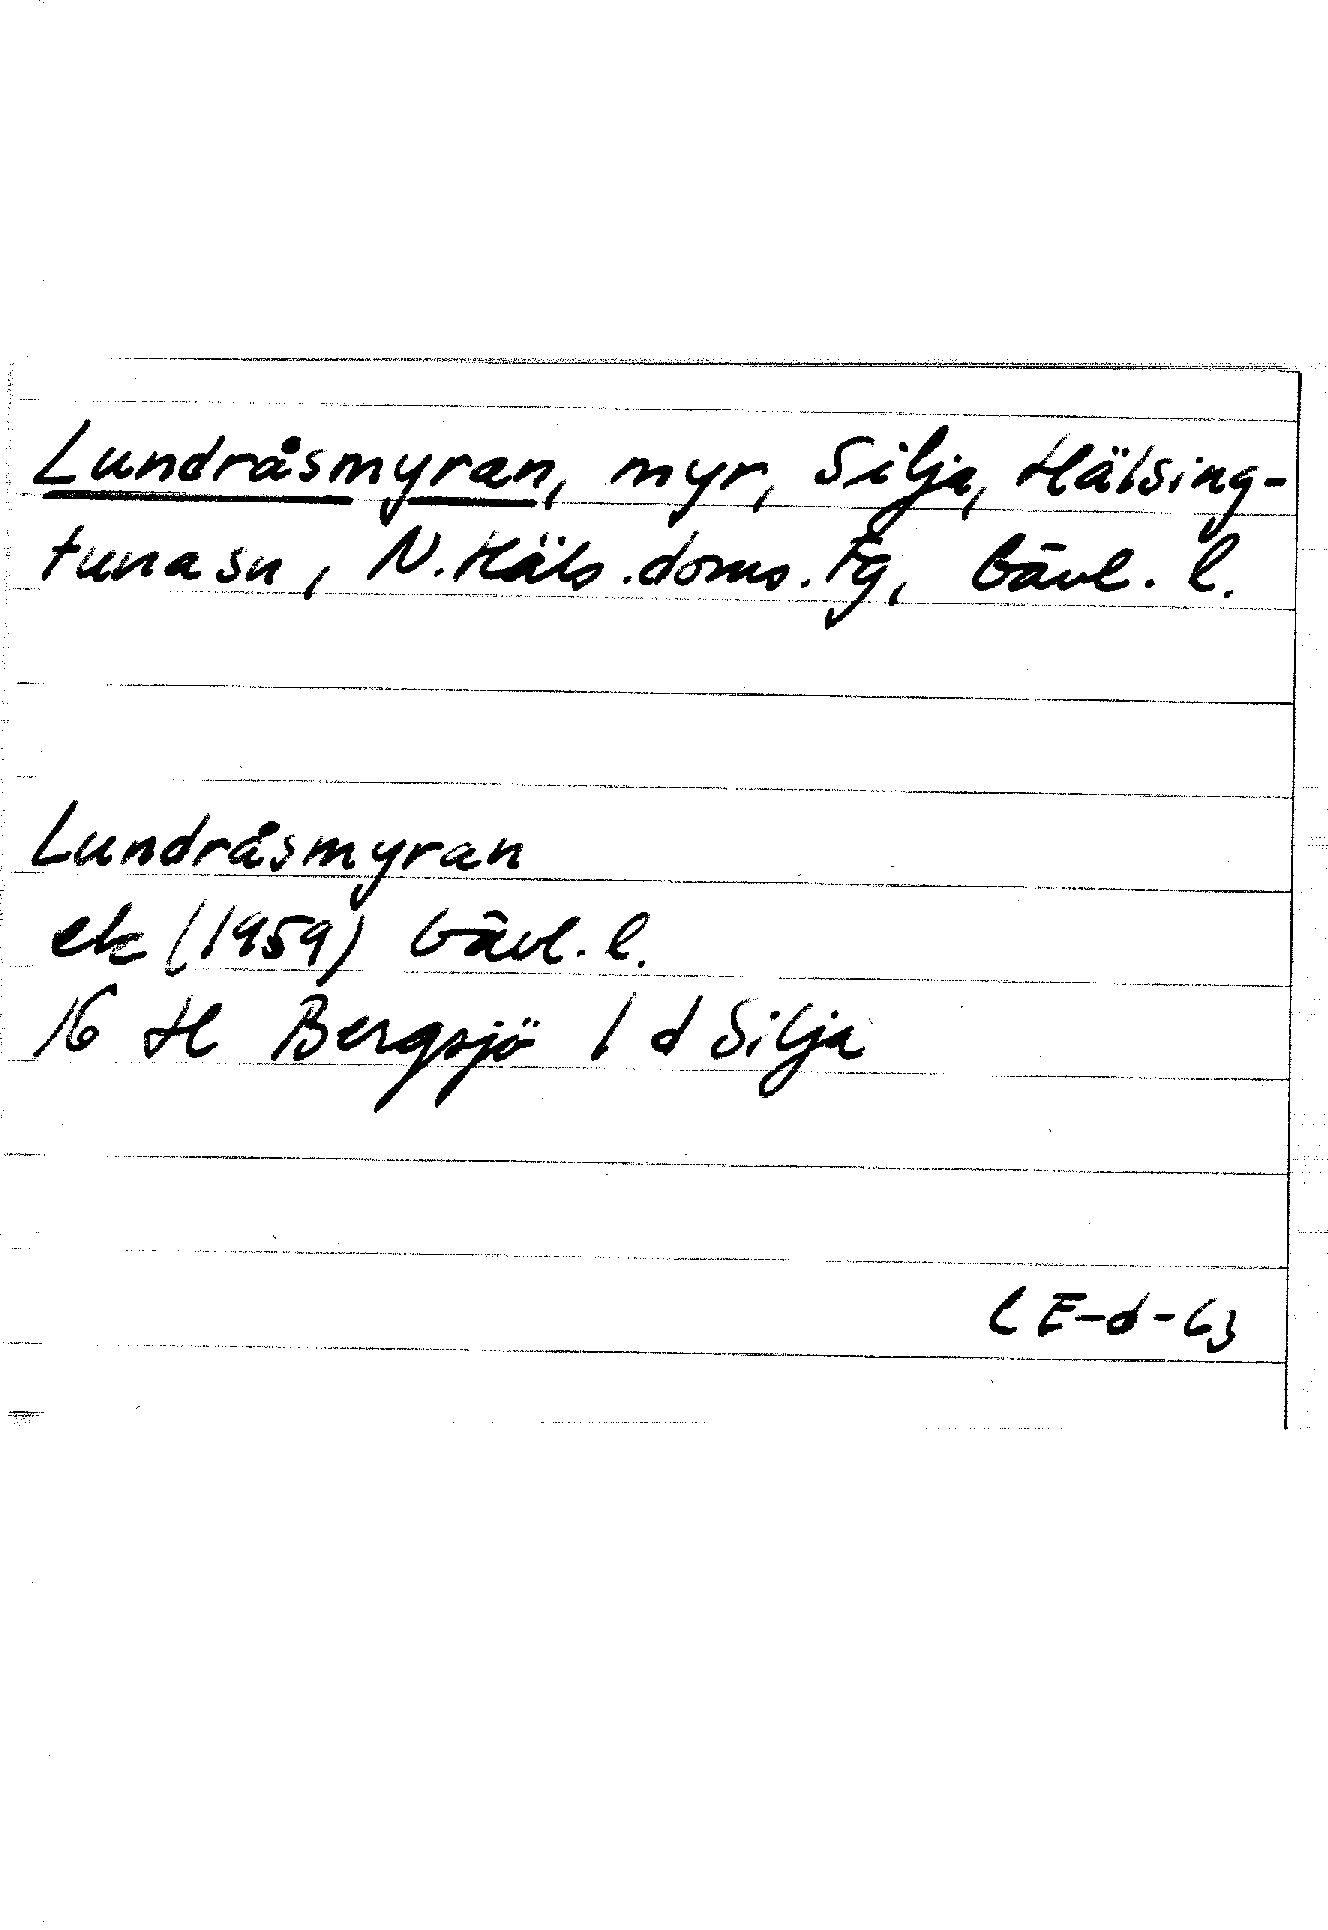 Lundråsmyran, myr, Silja, Hälsing-
tuna sn, N. Häls. doms. Fg, Gävl. l.
Lundråsmyran
ek (1959) Gävl. l.
16 H Bergsjö 1 d Silja
LE-d-63